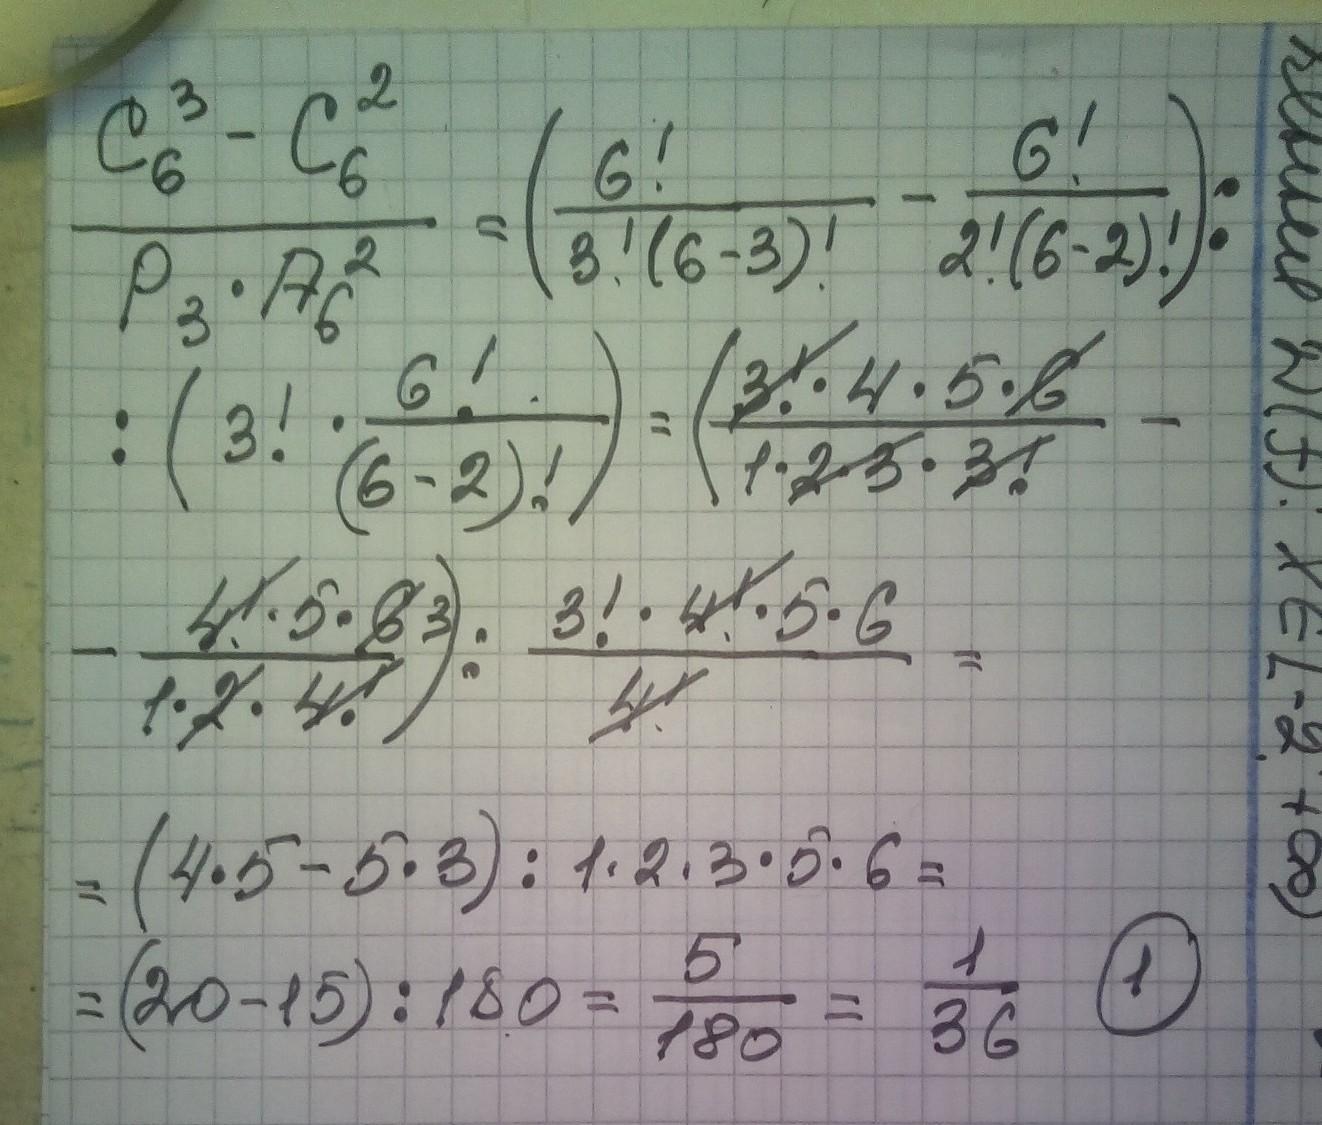 (C₆³ - C₆²) / (P₃ · A₆²) = (6! / (3!(6-3)!) - 6! / (2!(6-2)!)) :
: (3! · 6! / (6-2)!) = ((3! · 4 · 5 · 6) / (1 · 2 · 3 · 3!) -
- (4! · 5 · 6 3) / (1 · 2 · 4!)) : (3! · 4! · 5 · 6) / 4! =
= (4 · 5 - 5 · 3) : 1 · 2 · 3 · 5 · 6 =
= (20 - 15) : 180 = 5/180 = 1/36 ①
D(f): X∈[-2; +∞)